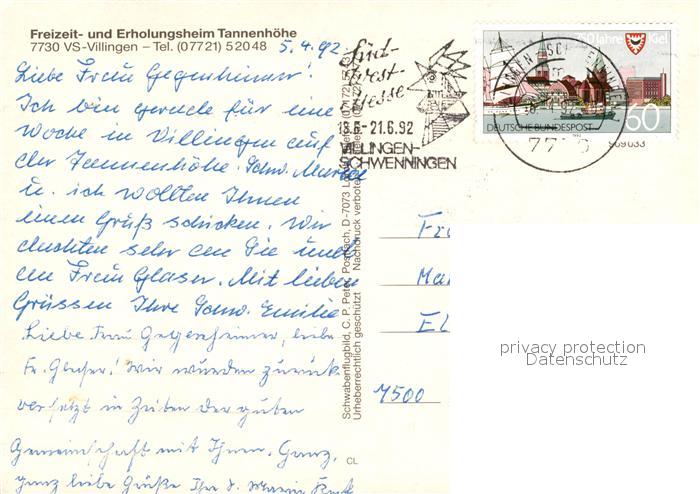 Freizeit- und Erholungsheim Tannenhöhe
7730 VS-Villingen – Tel. (07721) 52048
5.4.92
Liebe Frau Gegenheimer!
Ich bin gerade für eine
Woche in Villingen auf
der Tannenhöhe. Schw. Maria
u. ich wollten Ihnen
einen Gruß schicken. Wir
dachten sehr an Sie und
an Frau Glaser. Mit lieben
Grüssen Ihre Schw. Emilie
Liebe Frau Gegenheimer, liebe
Fr. Glaser! Wir wurden zurück-
versetzt in Zeiten der guten
Gemeinschaft mit Ihnen. Ganz,
ganz liebe Grüße Ihre S. Maria
Schwabenflugbild, C. P. Peter, Postfach, D-7073
Urheberrechtlich geschützt Nachdruck verboten
CL
Süd-
west-
Messe
13.6.-21.6.92
VILLINGEN-
SCHWENNINGEN
750 Jahre Kiel
DEUTSCHE BUNDESPOST
60
1992
909033
Fr
Ma
El
7500
privacy protection
Datenschutz